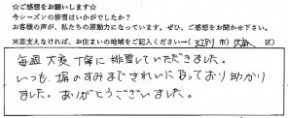 ☆ご感想をお願いします☆
今シーズンの排雪はいかがでしたか?
お客様の声が、私たちの原動力になっています。ぜひ、ご感想をお聞かせ下さい。
※差支えなければ、お住まいの地域をご記入ください→( 市) 区)
毎週大変丁寧に排雪していただきました。
いつも、塀のすみまできれいになっており助かり
ました。ありがとうございました。